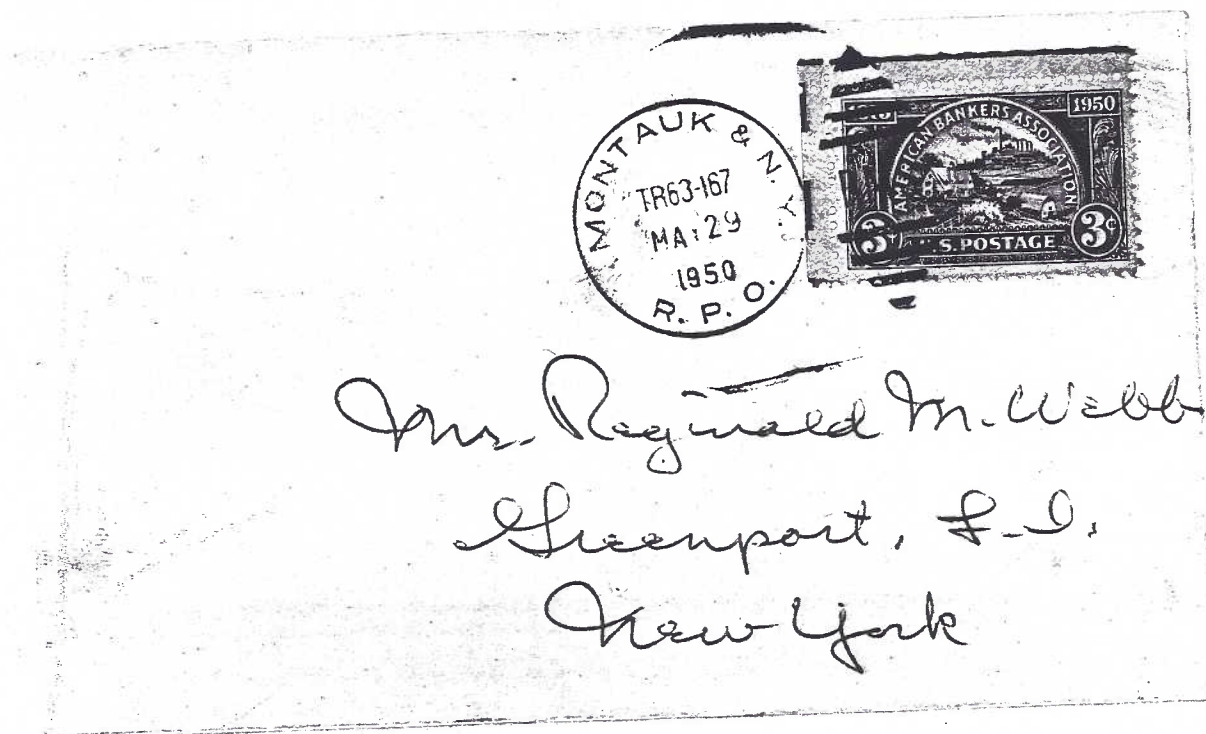 MONTAUK & N.Y.
TR63-167
MA 29
1950
R.P.O.
1950
AMERICAN BANKERS ASSOCIATION
3¢ U.S. POSTAGE 3¢
Mrs. Reginald M. Webb
Greenport, L.I.
New York